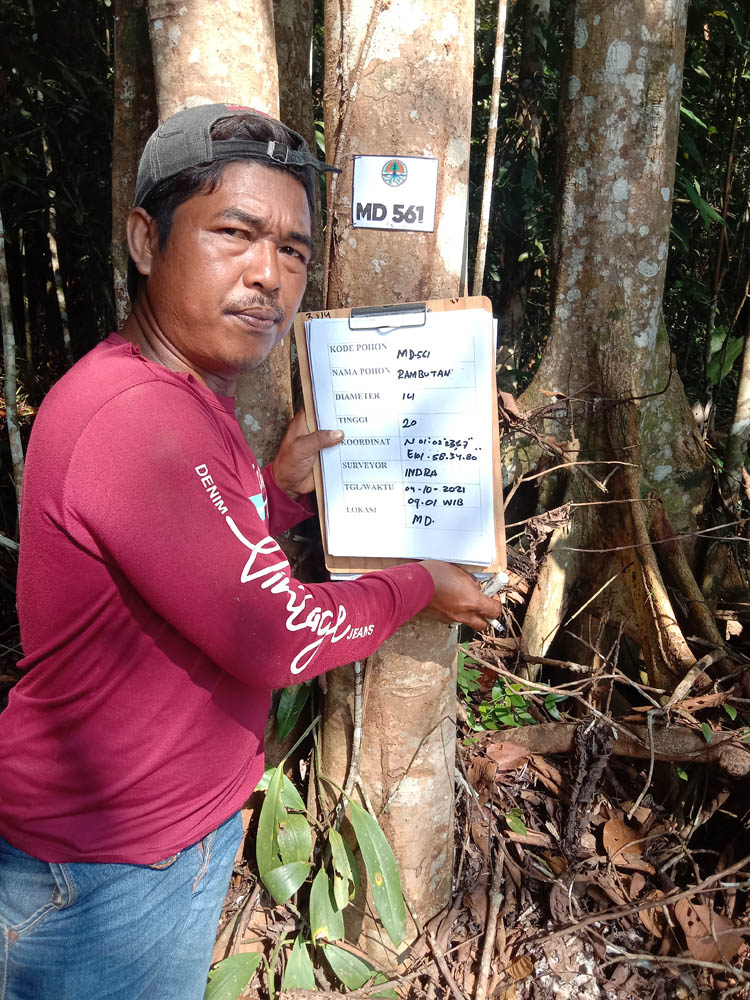 MD 561
3.14
KODE POHON MD-561
NAMA POHON RAMBUTAN
DIAMETER 14
TINGGI 20
KOORDINAT N 01:02'23,67"
E 101.58.34.80"
SURVEYOR INDRA
TGL/WAKTU 04-10-2021
09.01 WIB
LOKASI MD.
DENIM
Vintage
JEANS